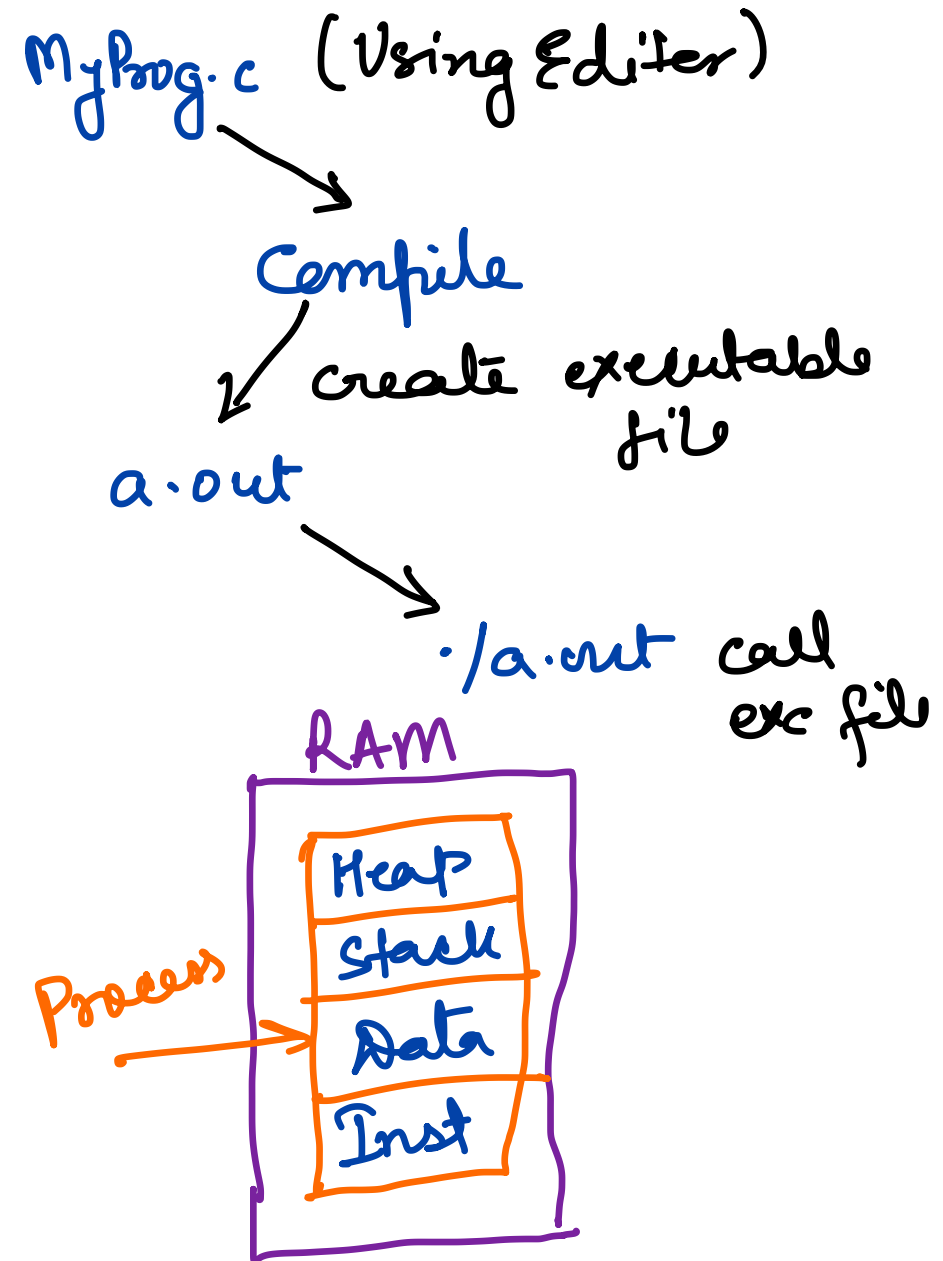 MyProg.c (Using Editer)
Compile
create executable
file
a.out
./a.out call
exc file
RAM
Heap
Stack
Process
Data
Inst